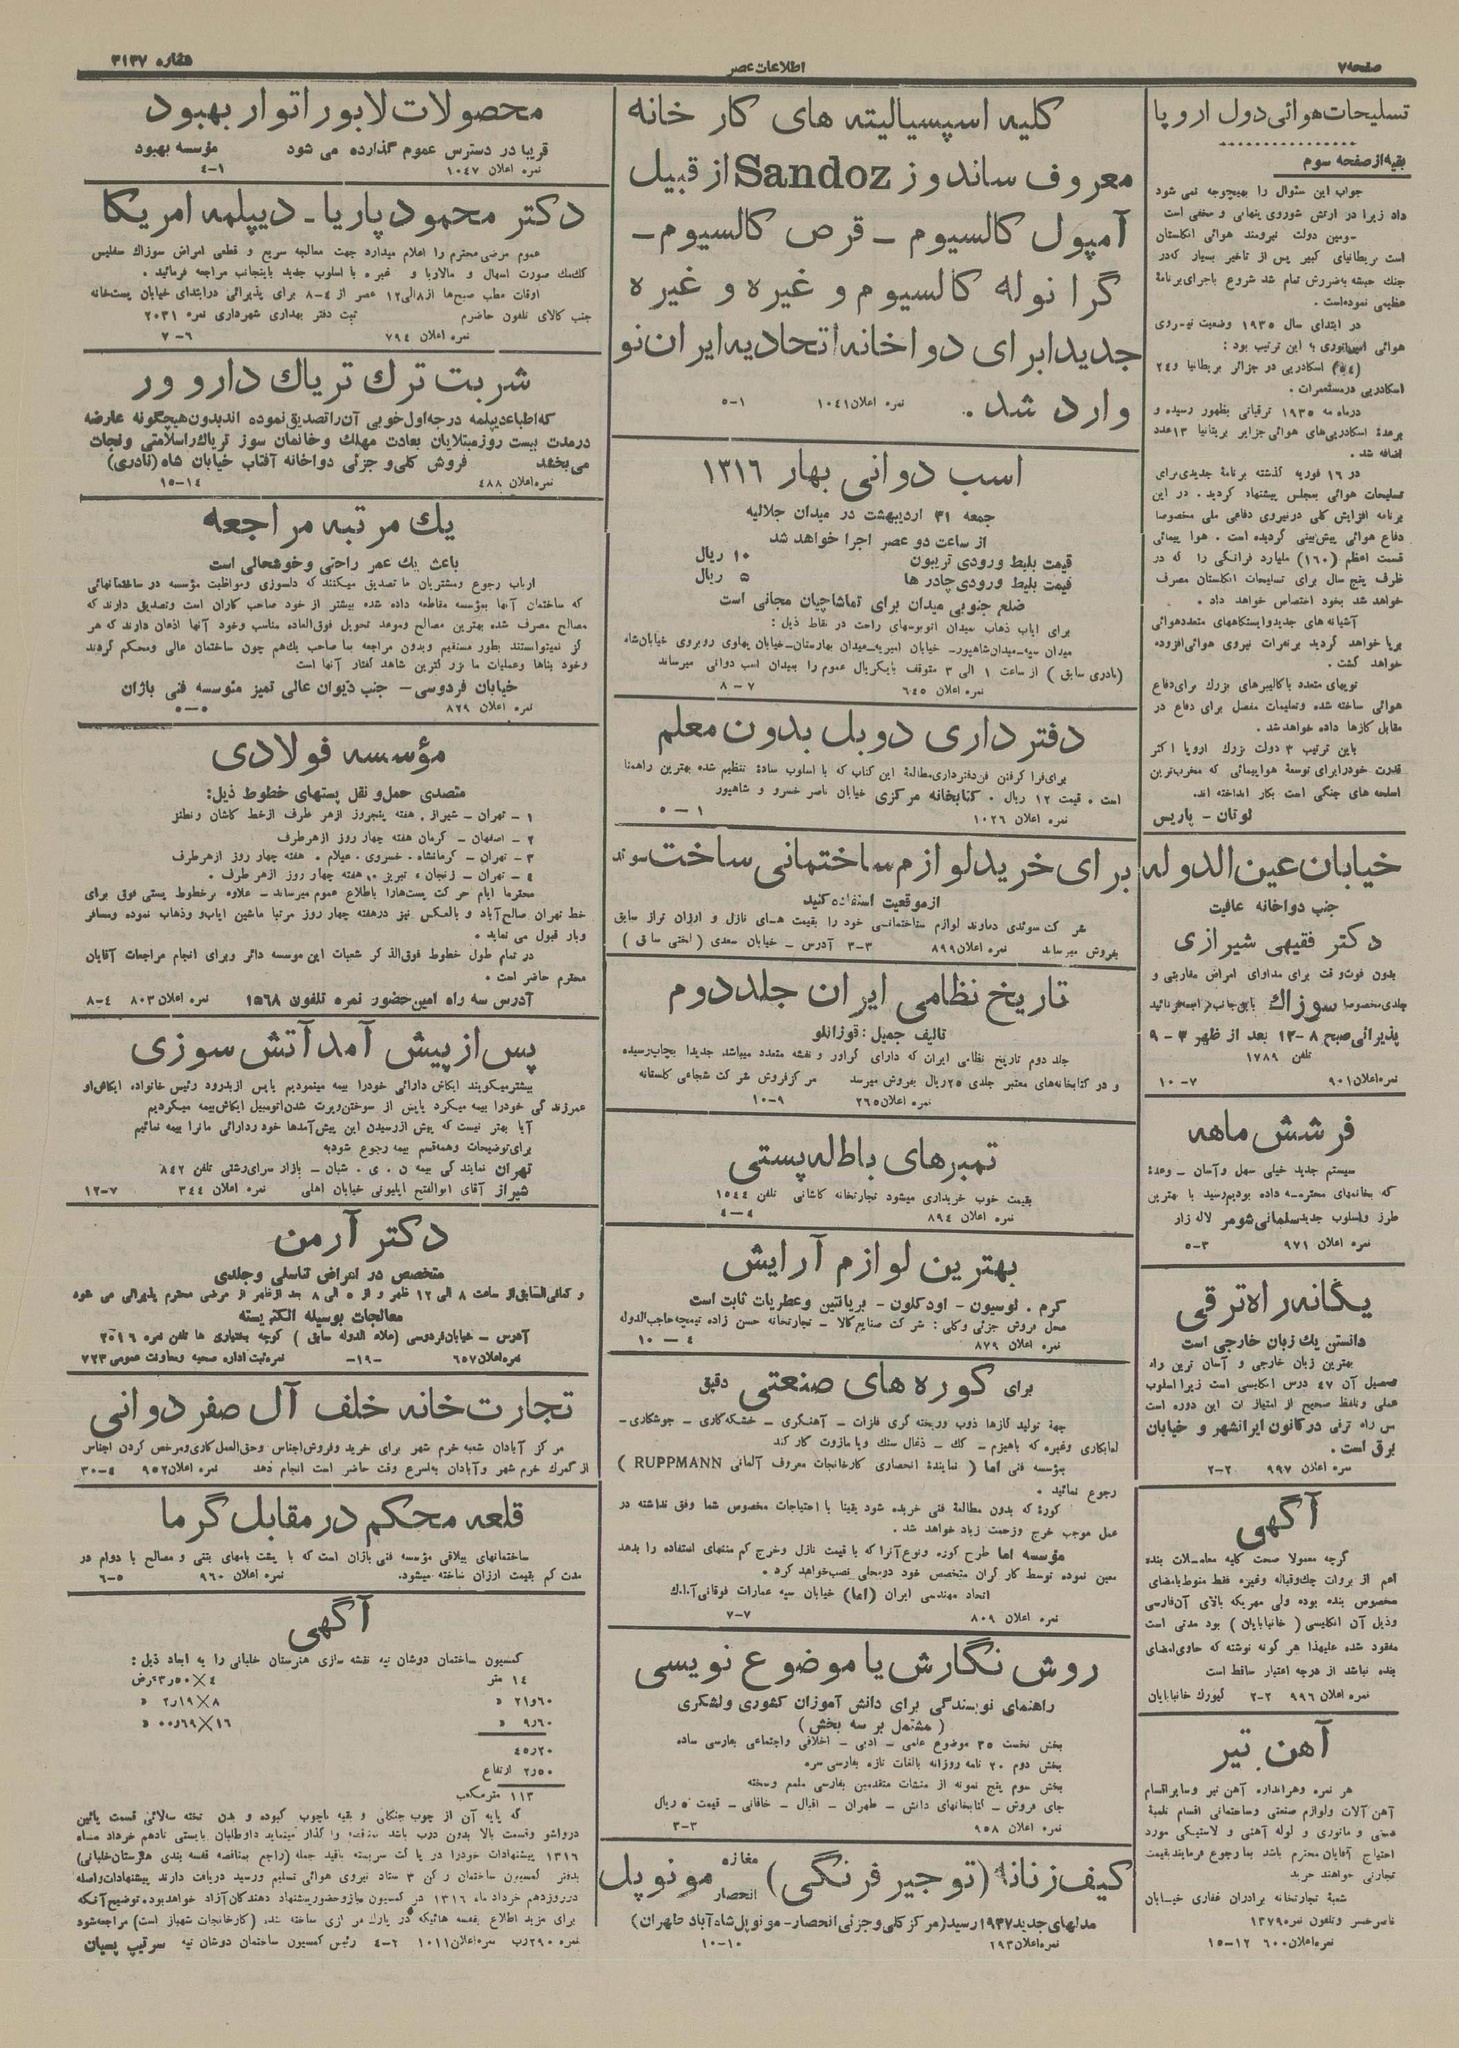 صفحه ۷
اطلاعات عصر
شماره ۳۱۳۷
تسلیحات هوائی دول اروپا
بقیه از صفحه سوم
جواب این سئوال را بهیچوجه نمی شود
داد زیرا در ارتش شوروی پنهانی و مخفی است
دومین دولت نیرومند هوائی انگلستان
است بریطانیای کبیر پس از تاخیر بسیار که در
جنگ حبشه بضررش تمام شد شروع باجرای برنامهٔ
عظیمی نموده است .
در ابتدای سال ۱۹۳۵ وضعیت نیروی
هوائی امپراتوری باین ترتیب بود :
اسکادریی در جزائر بریطانیا و ۲۴
اسکادریی در مستعمرات .
در ماه مه ۱۹۳۵ ترقیاتی بظهور رسیده و
برعدهٔ اسکادریی‌های هوائی جزایر بریتانیا ۱۳ عدد
اضافه شد .
در ۱۶ فوریه گذشته برنامهٔ جدیدی برای
تسلیحات هوائی بمجلس پیشنهاد گردید . در این
برنامه افزایش کلی در نیروی دفاعی ملی مخصوصا
دفاع هوائی پیش‌بینی گردیده است . هوا پیمائی
قسمت اعظم (۱۶۰) ملیارد فرانکی را که در
ظرف پنج سال برای تسلیحات انگلستان مصرف
خواهد شد بخود اختصاص خواهد داد .
آشیانه های جدید و ایستگاههای متعدد هوائی
برپا خواهد گردید بر نفرات نیروی هوائی افزوده
خواهد گشت .
توپهای متعدد با کالیبرهای بزرك برای دفاع
هوائی ساخته شده و تعلیمات مفصل برای دفاع در
مقابل گازها داده خواهد شد .
باین ترتیب ۳ دولت بزرك اروپا اکثر
قدرت خود را برای توسعهٔ هواپیمائی که مخرب‌ترین
اسلحه های جنگی است بکار انداخته اند.
لوتان - پاریس
خیابان عین الدوله
جنب دواخانه عافیت
دکتر فقیهی شیرازی
بدون فوت وقت برای مداوای امراض مقاربتی و
جلدی مخصوصا سوزاك باینجانب مراجعه فرمائید
پذیرائی صبح ۸-۱۲ بعد از ظهر ۳ - ۹
تلفن ۱۷۸۹
نمره اعلان ۹۰۱ ۷-۱۰
فر شش ماهه
سیستم جدید خیلی سهل و آسان - وعدهٔ
که بخانمهای محترمه داده بودیم رسید با بهترین
طرز و اسلوب جدید سلمانی شومر لاله زار
نمره اعلان ۹۷۱ ۳-۵
یگانه راه ترقی
دانستن یك زبان خارجی است
بهترین زبان خارجی و آسان ترین راه
تحصیل آن ۴۷ درس انگلیسی است زیرا اسلوب
عملی و تلفظ صحیح از امتیازات این دوره است
پس راه ترقی در کانون ایرانشهر و خیابان
برق است .
نمره اعلان ۹۹۷ ۲-۲
آگهی
گرچه معمولا صحت کلیه معاملات بنده
اعم از بروات چك و قباله و غیره فقط منوط بامضای
مخصوص بنده بوده ولی مهریکه بالای آن فارسی
و ذیل آن انگلیسی ( خانبابایان ) بود مدتی است
مفقود شده علیهذا هر گونه نوشته که حاوی امضای
بنده نباشد از درجه اعتبار ساقط است
نمره اعلان ۹۹۶ ۲-۲ گیورك خانبابایان
آهن تیر
هر نمره و هر اندازه آهن تیر و سایر اقسام
آهن آلات و لوازم صنعتی و ساختمانی اقسام تلمبهٔ
دستی و ماتوری و لوله آهنی و لاستیکی مورد
احتیاج آقایان محترم باشد بما رجوع فرمایند بقیمت
تجارتی خواهند خرید
شعبهٔ تجارتخانه برادران غفاری خیابان
ناصر خسرو تلفون نمره ۱۳۷۹
نمره اعلان ۶۰۰ ۱۲-۱۵
کلیه اسپسیالیته های کار خانه
معروف ساندوز Sandoz از قبیل
آمپول کالسیوم - قرص کالسیوم -
گرانوله کالسیوم و غیره و غیره
جدیدا برای دواخانه اتحادیه ایران نو
وارد شد . نمره اعلان ۱۰۴۱ ۱-۵
اسب دوانی بهار ۱۳۱۶
جمعه ۳۱ اردیبهشت در میدان جلالیه
از ساعت دو عصر اجرا خواهد شد
قیمت بلیط ورودی تریبون ۱۰ ریال
قیمت بلیط ورودی چادر ها ۵ ریال
ضلع جنوبی میدان برای تماشاچیان مجانی است
برای ایاب ذهاب میدان اتوبوسهای راحت در نقاط ذیل :
میدان سپه-میدان شاهپور- خیابان امیریه-میدان بهارستان-خیابان پهلوی روبروی خیابان شاه
(نادری سابق ) از ساعت ۱ الی ۳ متوقف بایکریال عموم را بمیدان اسب دوانی میرساند
نمره اعلان ۶۴۵ ۷-۸
دفتر داری دوبل بدون معلم
برای فرا گرفتن فن دفترداری مطالعهٔ این کتاب که با اسلوب سادهٔ تنظیم شده بهترین راهنما
است . قیمت ۱۲ ریال . کتابخانه مرکزی خیابان ناصر خسرو و شاهپور
نمره اعلان ۱۰۲۶ ۱-۵
برای خرید لوازم ساختمانی ساخت سوئد
از موقعیت استفاده کنید
شرکت سوئدی دماوند لوازم ساختمانی خود را بقیمت های نازل و ارزان تراز سابق
بفروش میرساند نمره اعلان ۸۹۹ ۳-۳ آدرس - خیابان سعدی ( لختی سابق )
تاریخ نظامی ایران جلد دوم
تالیف جمیل : قوزانلو
جلد دوم تاریخ نظامی ایران که دارای گراور و نقشه متعدد میباشد جدیدا بچاپ رسیده
و در کتابخانه‌های معتبر جلدی ۲۵ ریال بفروش میرسد مرکز فروش شرکت شجاعی گلستانه
نمره اعلان ۲۶۵ ۹-۱۰
تمبرهای باطله پستی
بقیمت خوب خریداری میشود تجارتخانه کاشانی تلفن ۱۵۴۴
نمره اعلان ۸۹۴ ۴-۴
بهترین لوازم آرایش
کرم . لوسیون - اودکلون - بریانتین و عطریات ثابت است
محل فروش جزئی و کلی : شرکت صنایع کالا - تجارتخانه حسن زاده تیمچه حاجب‌الدوله
نمره اعلان ۸۷۹ ۴-۱۰
برای کوره های صنعتی دقیق
جهة تولید گازها ذوب و ریخته گری فلزات - آهنگری - خشکه‌کاری - جوشکاری -
لعابکاری و غیره که باهیزم - کك - ذغال سنك و یا مازوت کار کند
بمؤسسه فنی اما ( نمایندهٔ انحصاری کارخانجات معروف آلمانی RUPPMANN )
رجوع نمائید .
کورهٔ که بدون مطالعهٔ فنی خریده شود یقینا با احتیاجات مخصوص شما وفق نداشته در
عمل موجب خرج و زحمت زیاد خواهد شد .
مؤسسه اما طرح کوره و نوع آنرا که با قیمت نازل و خرج کم منتهای استفاده را بدهد
معین نموده توسط کارگران متخصص خود در محلی نصب خواهد کرد .
اتحاد مهندسی ایران (اما) خیابان سپه عمارات فوقانی آ.ا.ك
نمره اعلان ۸۰۹ ۷-۷
روش نگارش یا موضوع نویسی
راهنمای نویسندگی برای دانش آموزان کشوری و لشکری
( مشتمل بر سه بخش )
بخش نخست ۳۵ موضوع علمی - ادبی - اخلاقی و اجتماعی بفارسی ساده
بخش دوم ۲۰ نامه روزانه بالغات تازه بفارسی سره
بخش سوم پنج نمونه از منشات متقدمین بفارسی ملمع و سخته
جای فروش - کتابخانهای دانش - طهران - اقبال - خاقانی - قیمت ۵ ریال
نمره اعلان ۹۵۸ ۳-۳
کیف زنانه (توجیر فرنگی) مغازه انحصار مونوپل
مدلهای جدید ۱۹۳۷ رسید (مرکز کلی و جزئی انحصار- مونوپل شاه‌آباد طهران)
نمره اعلان ۱۹۳ ۱۰-۱۰
محصولات لابوراتوار بهبود
قریبا در دسترس عموم گذارده می شود مؤسسه بهبود
نمره اعلان ۱۰۴۷ ۱-۴
دکتر محمود پاریا - دیپلمه امریکا
عموم مرضی محترم را اعلام میدارد جهت معالجه سریع و قطعی امراض سوزاك سفلیس
کك‌مك صورت اسهال و مالاریا و غیره با اسلوب جدید باینجانب مراجعه فرمائید .
اوقات مطب صبح‌ها از ۸ الی ۱۲ عصر از ۴-۸ برای پذیرائی در ابتدای خیابان پست‌خانه
جنب کالای تلفون حاضرم ثبت دفتر بهداری شهرداری نمره ۲۰۳۱
نمره اعلان ۷۹۴ ۶-۷
شربت ترك تریاك داروور
که اطباء دیپلمه درجه اول خوبی آن را تصدیق نموده اند بدون هیچگونه عارضه
در مدت بیست روز مبتلایان بعادت مهلك و خانمان سوز تریاك را سلامتی و نجات
می‌بخشد فروش کلی و جزئی دواخانه آفتاب خیابان شاه (نادری)
نمره اعلان ۴۸۸ ۱۴-۱۵
یك مرتبه مراجعه
باعث یك عمر راحتی و خوشحالی است
ارباب رجوع و مشتریان ما تصدیق میکنند که دلسوزی و مواظبت مؤسسه در ساختمانهائی
که ساختمان آنها بمؤسسه مقاطعه داده شده بیشتر از خود صاحب کاران است و تصدیق دارند که
مصالح مصرف شده بهترین مصالح و موعد تحویل فوق‌العاده مناسب و خود آنها اذعان دارند که هر
گز نمیتوانستند بطور مستقیم و بدون مراجعه بما صاحب یك‌هم چون ساختمان عالی و محکم گردند
و خود بناها و عملیات ما بزرگترین شاهد گفتار آنها است
خیابان فردوسی - جنب دیوان عالی تمیز مئوسسه فنی بازان
نمره اعلان ۸۲۹ ۵-۵
مؤسسه فولادی
متصدی حمل و نقل پستهای خطوط ذیل:
۱ - تهران - شیراز . هفته پنجروز از هر طرف از خط کاشان و نطنز
۲ - اصفهان - کرمان هفته چهار روز از هر طرف
۳ - تهران - کرمانشاه . خسروی . عیلام . هفته چهار روز از هر طرف
۴ - تهران - زنجان . تبریز . هفته چهار روز از هر طرف .
محترما ایام حرکت پست‌ها را باطلاع عموم میرساند - علاوه بر خطوط پستی فوق برای
خط تهران صالح‌آباد و بالعکس نیز در هفته چهار روز مرتبا ماشین ایاب و ذهاب نموده و مسافر
و بار قبول می نماید .
در تمام طول خطوط فوق‌الذکر شعبات این موسسه دائر و برای انجام مراجعات آقایان
محترم حاضر است .
آدرس سه راه امین حضور نمره تلفون ۱۵۶۸ نمره اعلان ۸۰۳ ۴-۸
پس از پیش آمد آتش سوزی
بیشتر میگویند ایکاش دارائی خود را بیمه مینمودیم یا پس از بدرود رئیس خانواده ایکاش او
عمر زندگی خود را بیمه میکرد یا پس از سوختن و پرت شدن اتومبیل ایکاش بیمه میکردیم
آیا بهتر نیست که پیش از رسیدن این پیش‌آمدها خود و دارائی مانرا بیمه نمائیم
برای توضیحات و همه قسم بیمه رجوع شود به
تهران نمایندگی بیمه ن . ی . شبان - بازار سرای رشتی تلفن ۸۴۲
شیراز آقای ابوالفتح ایلیونی خیابان اهلی نمره اعلان ۳۴۴ ۷-۱۲
دکتر آرمن
متخصص در امراض تناسلی و جلدی
و کمافی‌السابق از ساعت ۸ الی ۱۲ ظهر و از ۵ الی ۸ بعد از ظهر از مرضی محترم پذیرائی می شود
معالجات بوسیله الکتریسته
آدرس - خیابان فردوسی (علاء الدوله سابق ) کوچه بختیاری ها تلفن نمره ۲۵۱۶
نمره اعلان ۶۵۷ -۱۹- نمره ثبت اداره صحیه و معاونت عمومی ۷۲۳
تجارت خانه خلف آل صفر دوانی
مرکز آبادان شعبه خرم شهر برای خرید و فروش اجناس و حق‌العمل کاری و مرخص کردن اجناس
از گمرك خرم شهر و آبادان به‌اسرع وقت حاضر است انجام دهد نمره اعلان ۹۵۲ ۴-۳۰
قلعه محکم در مقابل گرما
ساختمانهای ییلاقی مؤسسه فنی بازان است که با پشت بامهای بتنی و مصالح با دوام در
مدت کم بقیمت ارزان ساخته میشود. نمره اعلان ۹۶۰ ۵-۶
آگهی
کمسیون ساختمان دوشان تپه نقشه سازی هنرستان خلبانی را به ابعاد ذیل :
۱۴ متر
۲۱و۶۰ »
۹ر۶۰ »
۴۵ر۲۰
۲ر۵۰ ارتفاع
۱۱۳ مترمکعب
که پایه آن از چوب جنگلی و بقیه باچوب کبوده و بدن تخته سالائی قسمت پائین
درواشو و قسمت بالا بدون درب باشد بمناقصه واگذار مینماید داوطلبان بایستی تادهم خرداد ماه
۱۳۱۶ پیشنهادات خود را در پاکت سربسته باقید جمله (راجع بمناقصه قفسه بندی هنرستان خلبانی)
بدفتر کمسیون ساختمان رکن ۳ ستاد نیروی هوائی تسلیم و رسید دریافت دارند پیشنهادات واصله
در روز دهم خرداد ماه ۱۳۱۶ در کمسیون مبازو حضور پیشنهاد دهندگان آزاد خواهد بود توضیح آنکه
برای مزید اطلاع بقفسه هائیکه در پارك مرکزی ساخته شده (کارخانجات شهباز است) مراجعه شود
نمره ۲۹۰رب نمره اعلان ۱۰۱۱ ۲-۴ رئیس کمسیون ساختمان دوشان تپه سرتیپ پسیان